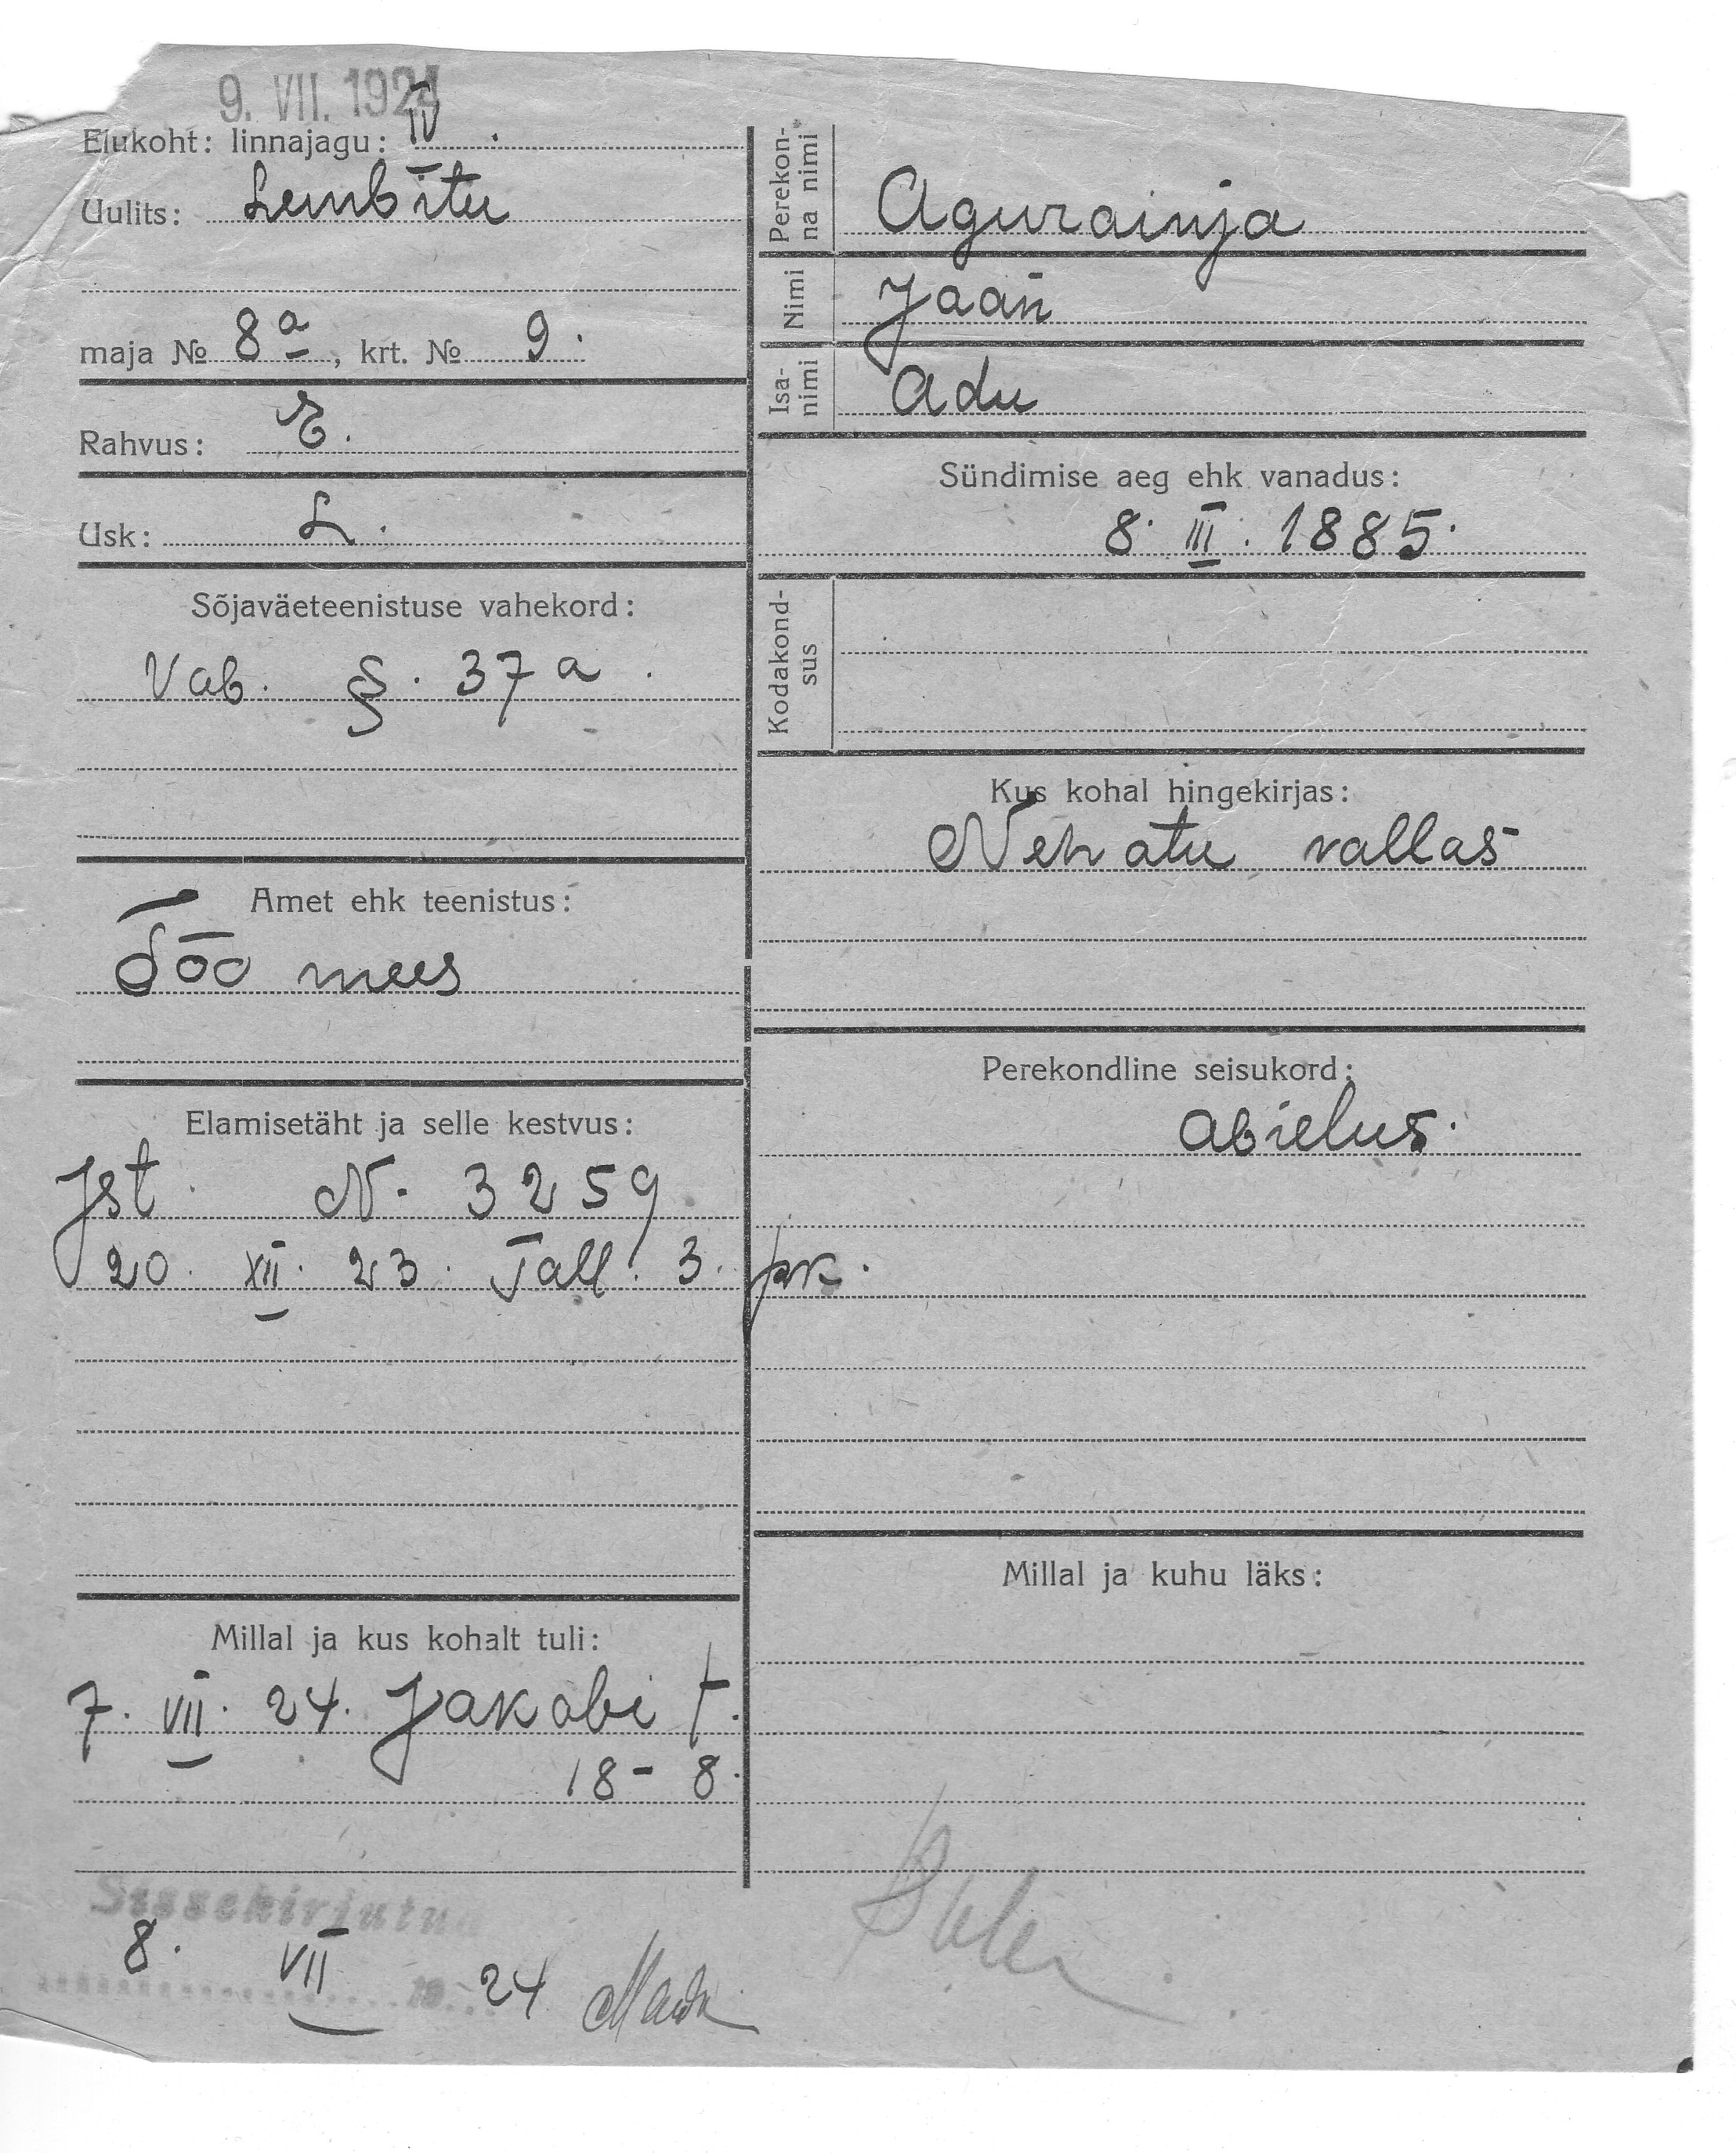 9. VII. 1924
Elukoht: linnajagu: IV.
Uulits: Lembitu
maja № 8a, krt. № 9.
Rahvus: E.
Usk: L.
Sõjaväeteenistuse vahekord:
Vab. §. 37 a.
Amet ehk teenistus:
Töö mees
Elamisetäht ja selle kestvus:
Jst. N. 3259
20. XII. 23. Tall. 3. jsk.
Millal ja kus kohalt tuli:
7. VII. 24. Jakobi t.
18-8.
Sissekirjutu
8. VII 1924
Perekon-
na nimi
Aguraiuja
Nimi
Jaan
Isa-
nimi
Adu
Sündimise aeg ehk vanadus:
8. III. 1885.
Kodakond-
sus
Kus kohal hingekirjas:
Nehatu vallas
Perekondline seisukord:
abielus.
Millal ja kuhu läks: